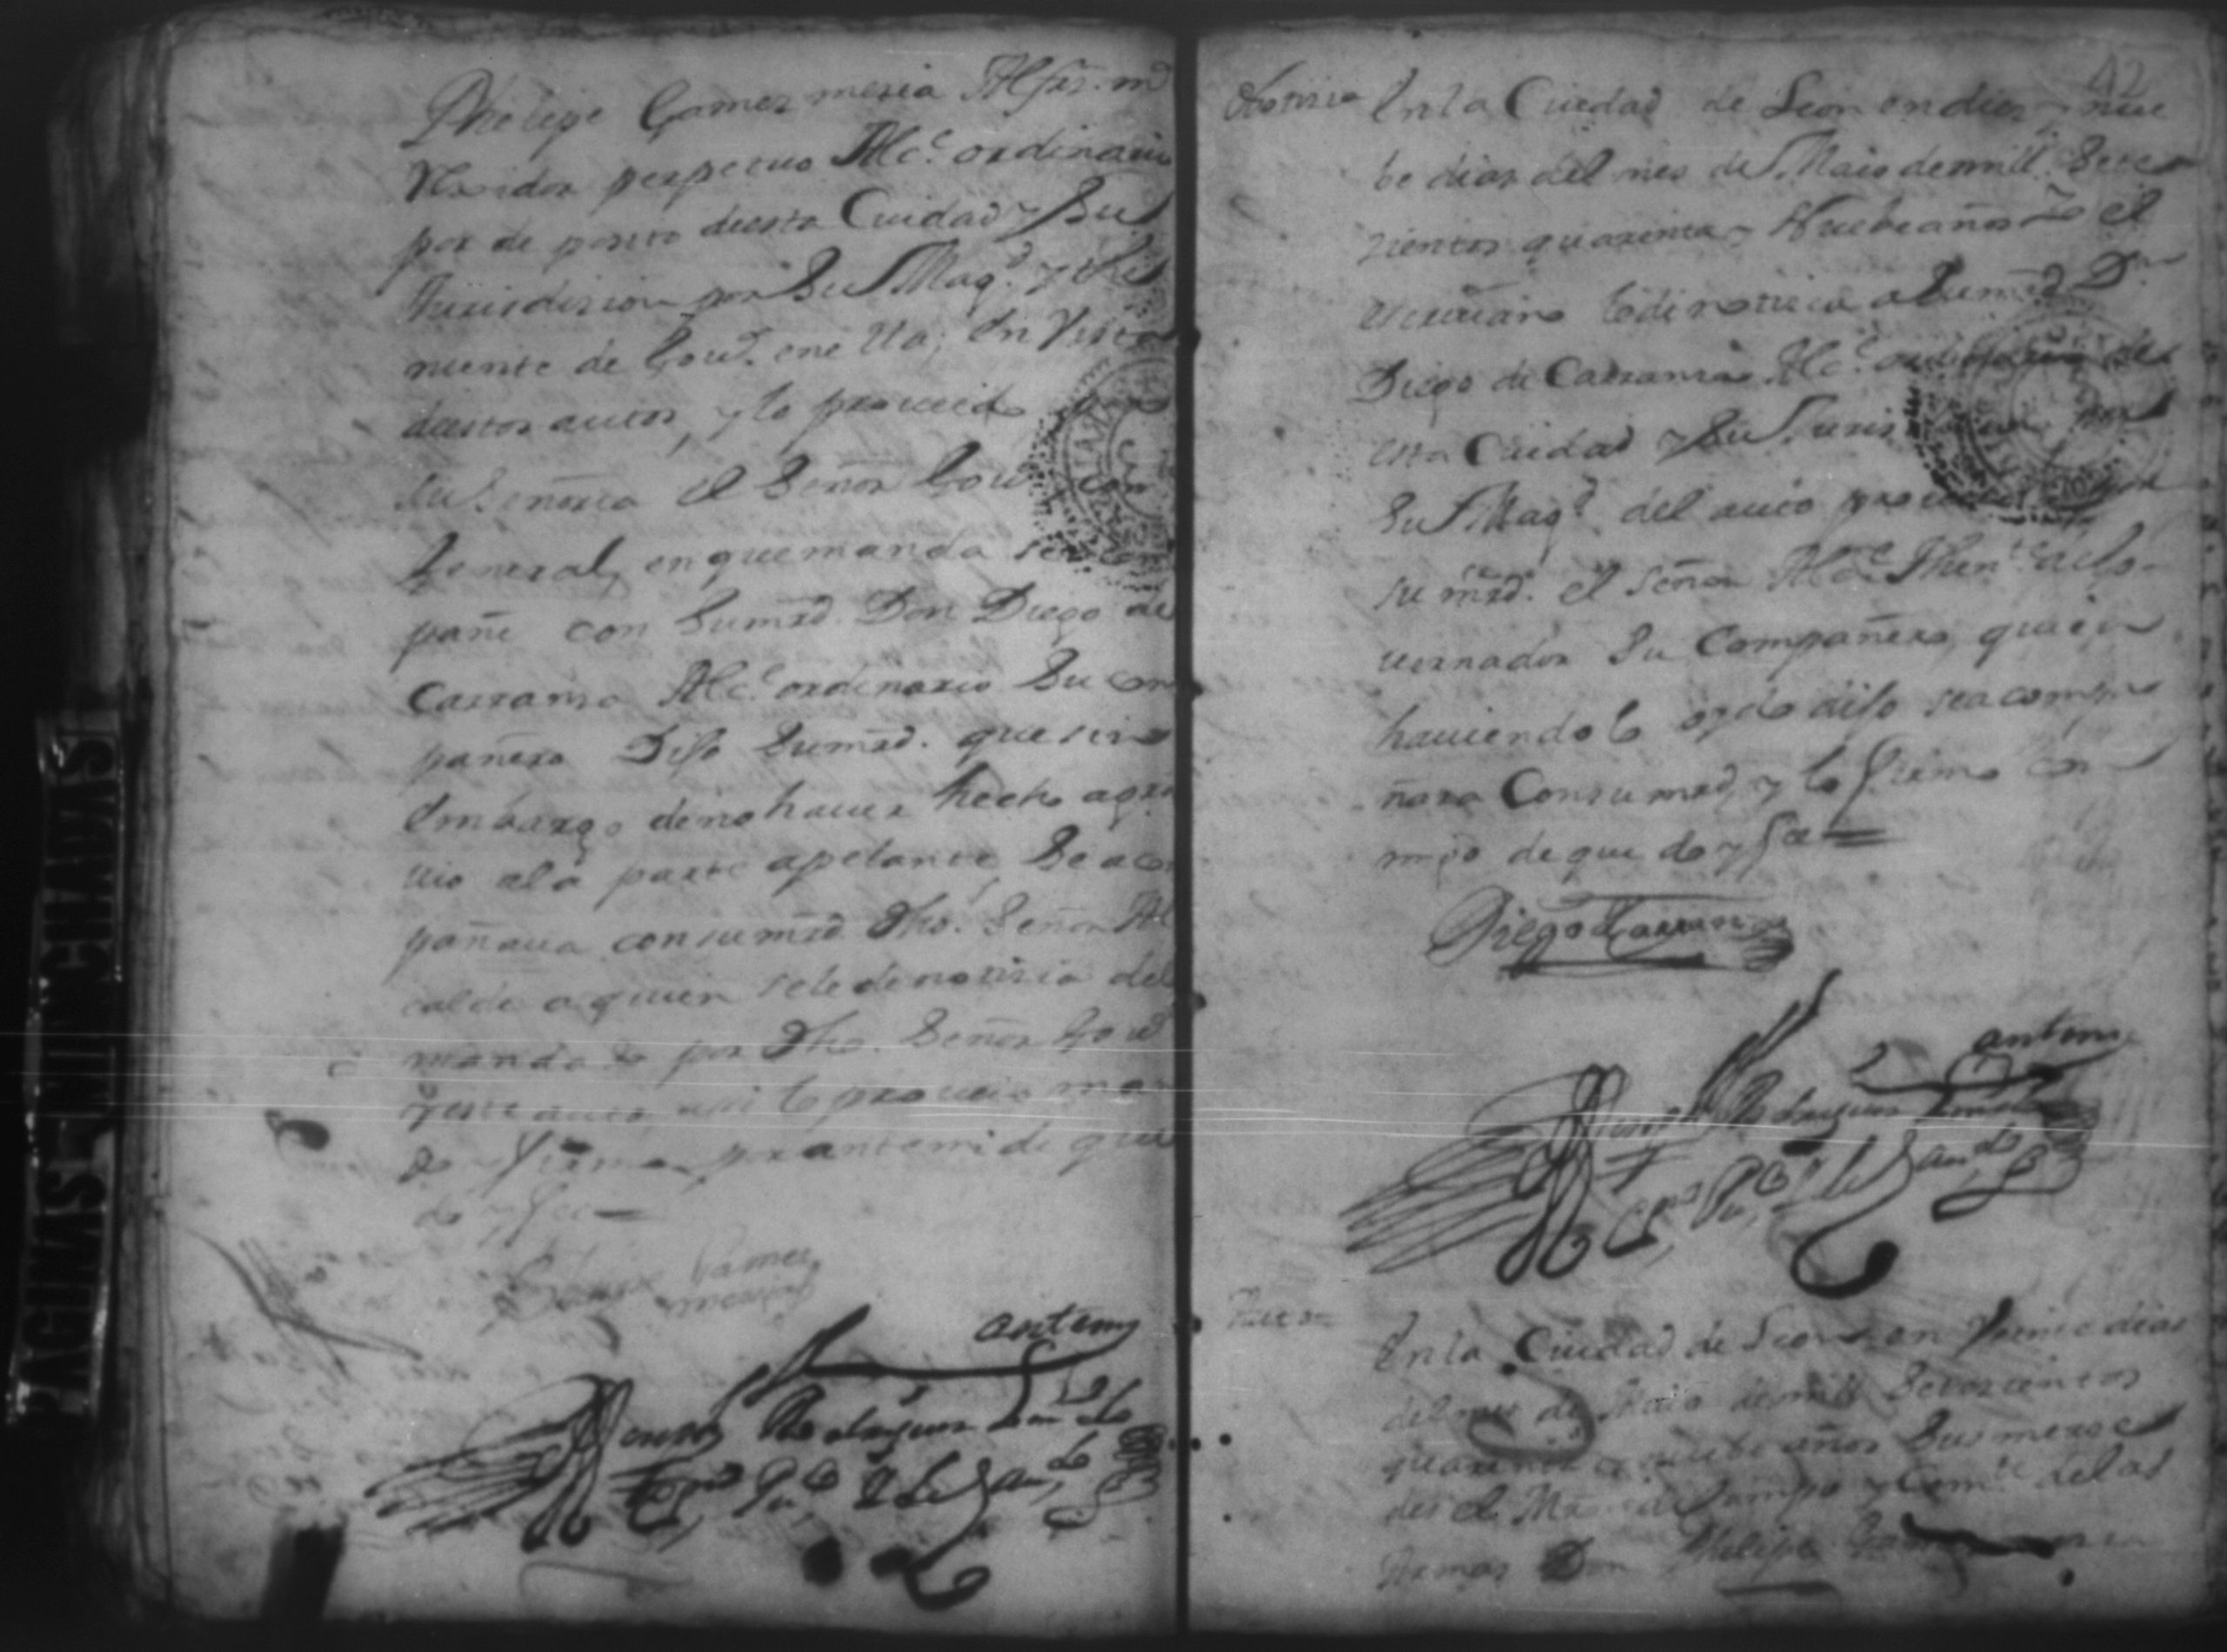 Phelipe Gomez mesia Alfrz. m.r
Rexidor perpetuo Alc.e ordinario
por de posito deesta Ciudad y Su
Jurisdizion por Su Mag.d y the
niente de Gou.r en ella; En Vista
deestos autos, y lo proueido
su Señoria el Señor Gou.r
General, en que manda se
pañe con Sumrd. Don Diego de
Carranza Alc.e ordinario Su com
pañero Dijo Sumrd. que sin
Embargo de no hauer hecho agra
uio ala parte apelante, Se acom
pañaua con sumrd. dho. Señor Al
calde a quien sele de notisia del
mandado por dho. Señor Gou.r
y este auto, asi lo proueio man
do y firmo por ante mi de que
doy fee
Phelipe Gamez
mesia
antemi
Rodriguez
Es.no Pu.co
Notisia En la Ciudad de Leon en diez y nue
be dias del mes de Maio de mill Sete
zientos quarenta y Nuebe años Yo el
escriuano lo di notisia a Sumrd D.n
Diego de Carranza Alc.e ordinario de
esta Ciudad y Su Juris por
Su Mag.d del auto
su mrd. el señor Alc.e Then.te de Go
uernador Su Compañero, quien
hauiendolo oydo dijo se acompa
ñara Con sumrd, y lo firmo con
migo de que doy fee
Diego Carranza
antemi
Rodriguez
Es.no Pu.co
Auto
En la Ciudad de Leon en Veinte dias
del mes de Maio de mill Setecientos
quarenta y nuebe años Sus merce
des el Mre. de Campo y Com.te de las
Armas Don Phelipe
42
PAGINAS MANCHADAS